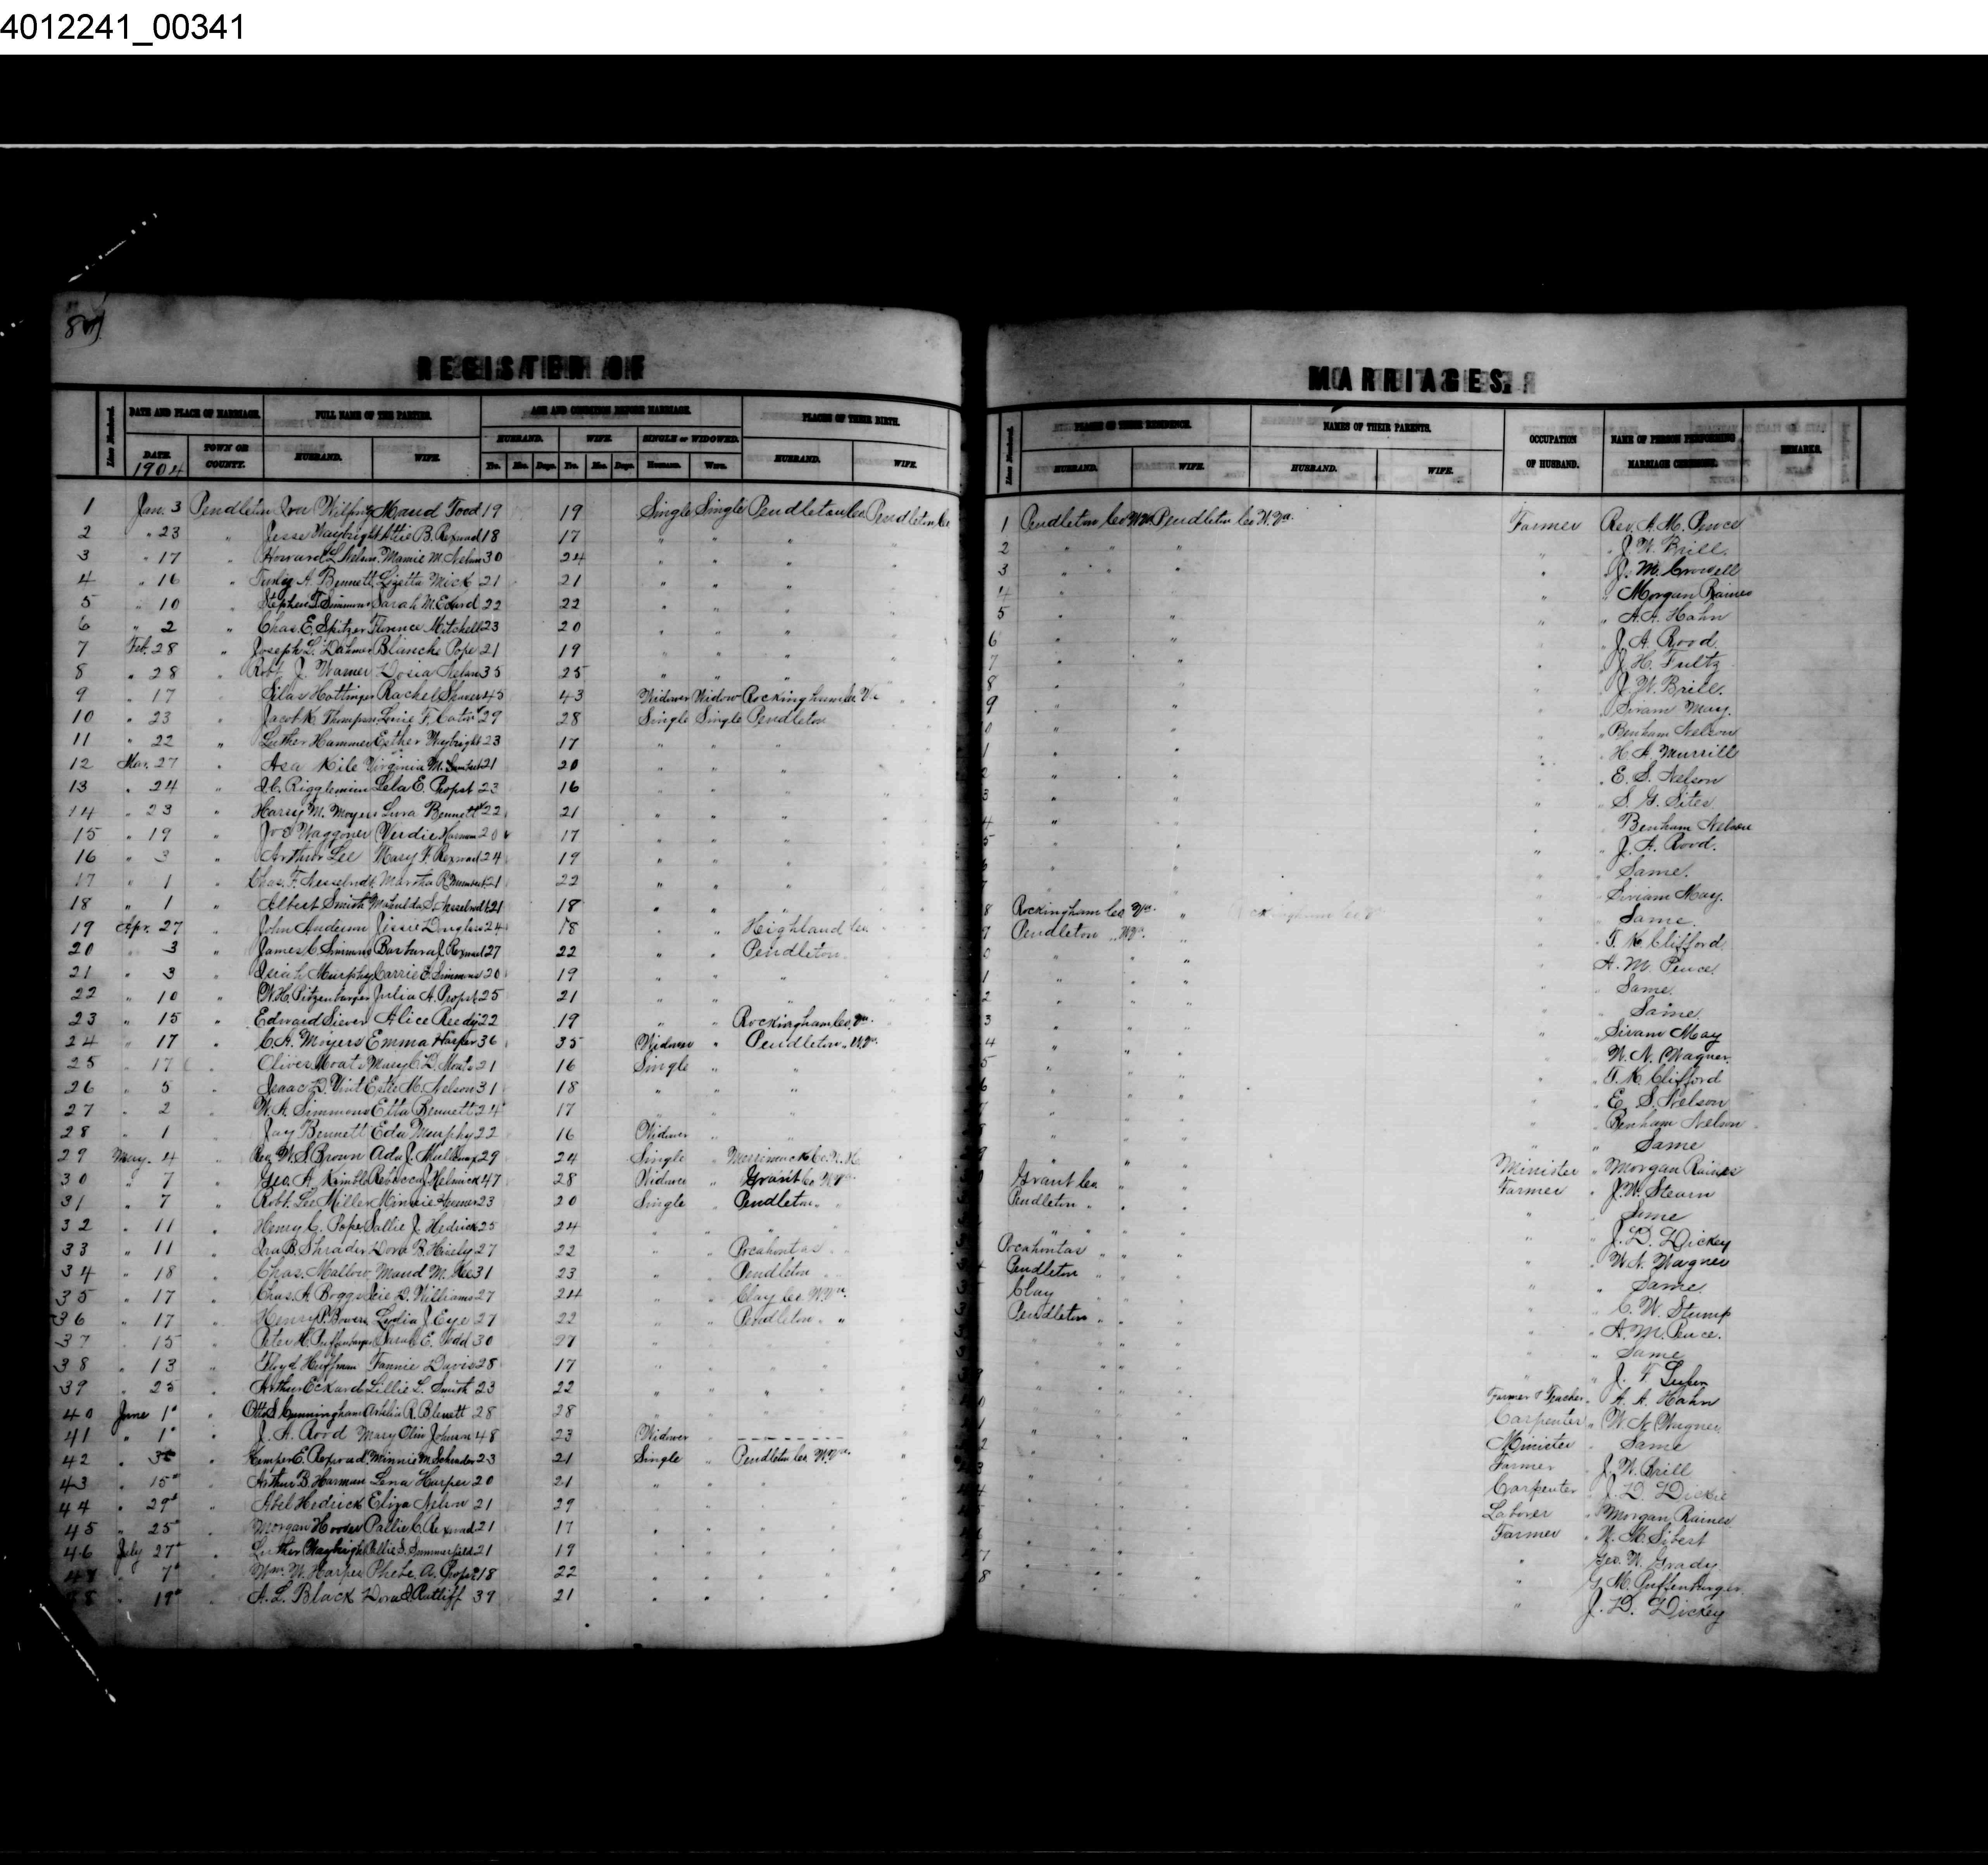 4012241_00341
REGISTER OF MARRIAGES.
Line Numbered. DATE AND PLACE OF MARRIAGE. FULL NAME OF THE PARTIES. AGE AND CONDITION BEFORE MARRIAGE. PLACES OF THEIR BIRTH. Line Numbered. PLACES OF THEIR RESIDENCE. NAMES OF THEIR PARENTS. OCCUPATION OF HUSBAND. NAME OF PERSON PERFORMING MARRIAGE CEREMONY. REMARKS.
DATE. 1904 TOWN OR COUNTY. HUSBAND. WIFE. HUSBAND. WIFE. SINGLE or WIDOWED. HUSBAND. WIFE. HUSBAND. WIFE. HUSBAND. WIFE.
Yrs. Mos. Days. Yrs. Mos. Days.
1 Jan. 3 Pendleton Maud Tood 19 19 Single Single Pendleton Co Pendleton Co 1 Pendleton Co W.Va. Pendleton Co W.Va. Farmer Rev. A. M. Pence
2 " 23 " Jesse Waybright B. Rexroad 18 17 " " " 2 " " " " J. W. Brill.
3 " 17 " Howard L. Nelson Mamie M. Nelson 30 24 " " " 3 " " " " J. M. Crowell
4 " 16 " A. Bennett Lizetta Mick 21 21 " " " 4 " " " " Morgan Raines
5 " 10 " Stephen T. Simmons Sarah M. Eckard 22 22 " " " 5 " " " " A. A. Hahn
6 " 2 " Chas. E. Spitzer Florence Mitchell 23 20 " " " 6 " " " " J. A. Rood
7 Feb. 28 " Joseph L. Dahmer Blanche Pope 21 19 " " " 7 " " " " J. H. Fultz
8 " 28 Robt. J. Warner Dosia Nelson 35 25 " " " 8 " " " " J. W. Brill.
9 " 17 " Silas Hottinger Rachel Shaver 45 43 Widower Widow Rockingham Co. Va 9 " " " " May.
10 " 23 " Jacob K. Thompson F. 29 28 Single Single Pendleton " " " " Benham Nelson
11 " 22 " Luther Hammer Esther Waybright 23 17 " " " " " " " H. A. Murrill
12 Mar. 27 " Asa Kile Virginia M. Lambert 21 20 " " " " " " " E. S. Nelson
13 " 24 " Riggleman Lela E. Propst 23 16 " " " " " " " S. G. Sites
14 " 23 " Harry M. Moyers Lura Bennett 22 21 " " " " " " " Benham Nelson
15 " 19 " Joe Waggoner Verdie Harman 20 17 " " " " " " " J. A. Rood.
16 " 3 " Arthur Lee Mary F. Rexroad 24 19 " " " " " " " Same.
17 " 1 " Chas. F. Nesselrodt Martha R. 21 22 " " " " " " " May.
18 " 1 " Albert Smith Matilda S. Nesselrodt 21 18 " " " Rockingham Co. Va. " " " Same.
19 Apr. 27 " John Anderson Jessie Douglas 24 18 " " Highland Co. Pendleton " W.Va. " " " T. K. Clifford
20 " 3 " James C. Simmons Barbara J. Rexroad 27 22 " " Pendleton " " " " A. M. Pence
21 " 3 " Isiah Murphy Carrie E. Simmons 20 19 " " " " " " " Same.
22 " 10 " W. H. Pitzenbarger Julia A. Propst 25 21 " " " " " " " Same.
23 " 15 " Edward Siever Alice Reedy 22 19 " " Rockingham Co. Va. " " " " May
24 " 17 " C. A. Moyers Emma Harper 36 35 Widower " Pendleton " W.Va. " " " " W. N. Wagner.
25 " 17 " Oliver Moats Mary C. D. Moats 21 16 Single " " " " " " T. K. Clifford
26 " 5 " Isaac D. Vint Estie M. Nelson 31 18 " " " " " " " E. S. Nelson
27 " 2 " W. A. Simmons Etta Bennett 24 17 " " " " " " " Benham Nelson
28 " 1 " Jay Bennett Eda Murphy 22 16 Widower " " " " " " Same
29 May. 4 " Rev. W. S. Brown Ada J. Mullenax 29 24 Single " Merrimack Co. N. H. " " Minister " Morgan Raines
30 " 7 " Geo. A. Kimble Rebecca J. Helmick 47 28 Widower " Grant Co W.Va. Grant Co. " Farmer " J. W. Stearn
31 " 7 " Robt. Lee Miller Minnie 23 20 Single " Pendleton " " Pendleton " " " " Same
32 " 11 " Henry C. Pope Sallie J. Hedrick 25 24 " " " " " " " J. D. Dickey
33 " 11 " Ira B. Shrader Dora B. Hively 27 22 " " Pocahontas Pocahontas " " " " W. N. Wagner
34 " 18 " Chas. Mallow Maud M. Kee 31 23 " " Pendleton Pendleton " " " " Same.
35 " 17 " Chas. A. Boggs D. Williams 27 24 " " Clay Co. W.Va. Clay " " " " C. W. Stump
36 " 17 " Henry P. Bowers Lydia J. Eye 27 22 " " Pendleton " " Pendleton " " " " A. M. Pence.
37 " 15 " Peter K. Puffenbarger Sarah E. Todd 30 27 " " " " " " " Same
38 " 13 " Floyd Huffman Fannie Davis 28 17 " " " " " " " J. F.
39 " 25 " Arthur Eckard Lillie L. Smith 23 22 " " " " " Farmer & Teacher " A. A. Hahn
40 June 1st " Otto S. Cunningham R. 28 28 " " " " " Carpenter " W. N. Wagner
41 " 1st " J. A. Rood Mary Olive Johnson 48 23 Widower " - - - - - - - " " Minister " Same
42 " " Kemper E. Rexroad Minnie M. 23 21 Single " Pendleton Co. W.Va. " " Farmer " J. W. Brill
43 " 15th " Arthur B. Harman Lena Harper 20 21 " " " " " Carpenter " J. D. Dickie
44 " 29th " Abel Hedrick Eliza Nelson 21 29 " " " " " Laborer " Morgan Raines
45 " 25th " Morgan Hoover C. Rexroad 21 17 " " " " " Farmer " Sibert
46 July 27th " Luther Waybright S. Summerfield 21 19 " " " " " " " Geo. W. Grady
47 " 7th " Wm. W. Harper Phebe A. Propst 18 22 " " " " " " Puffenbarger
48 " 19th " A. L. Black Dora Ratliff 39 21 " " " " " " J. D. Dickey